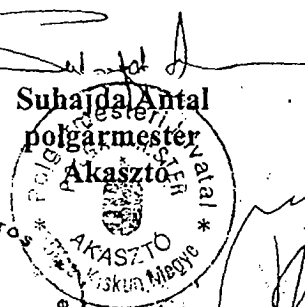 Suhajda Antal
polgármester
Akasztó
Polgármesteri Hivatal
POLGÁRMESTER
* AKASZTÓ *
Bács-Kiskun Megye